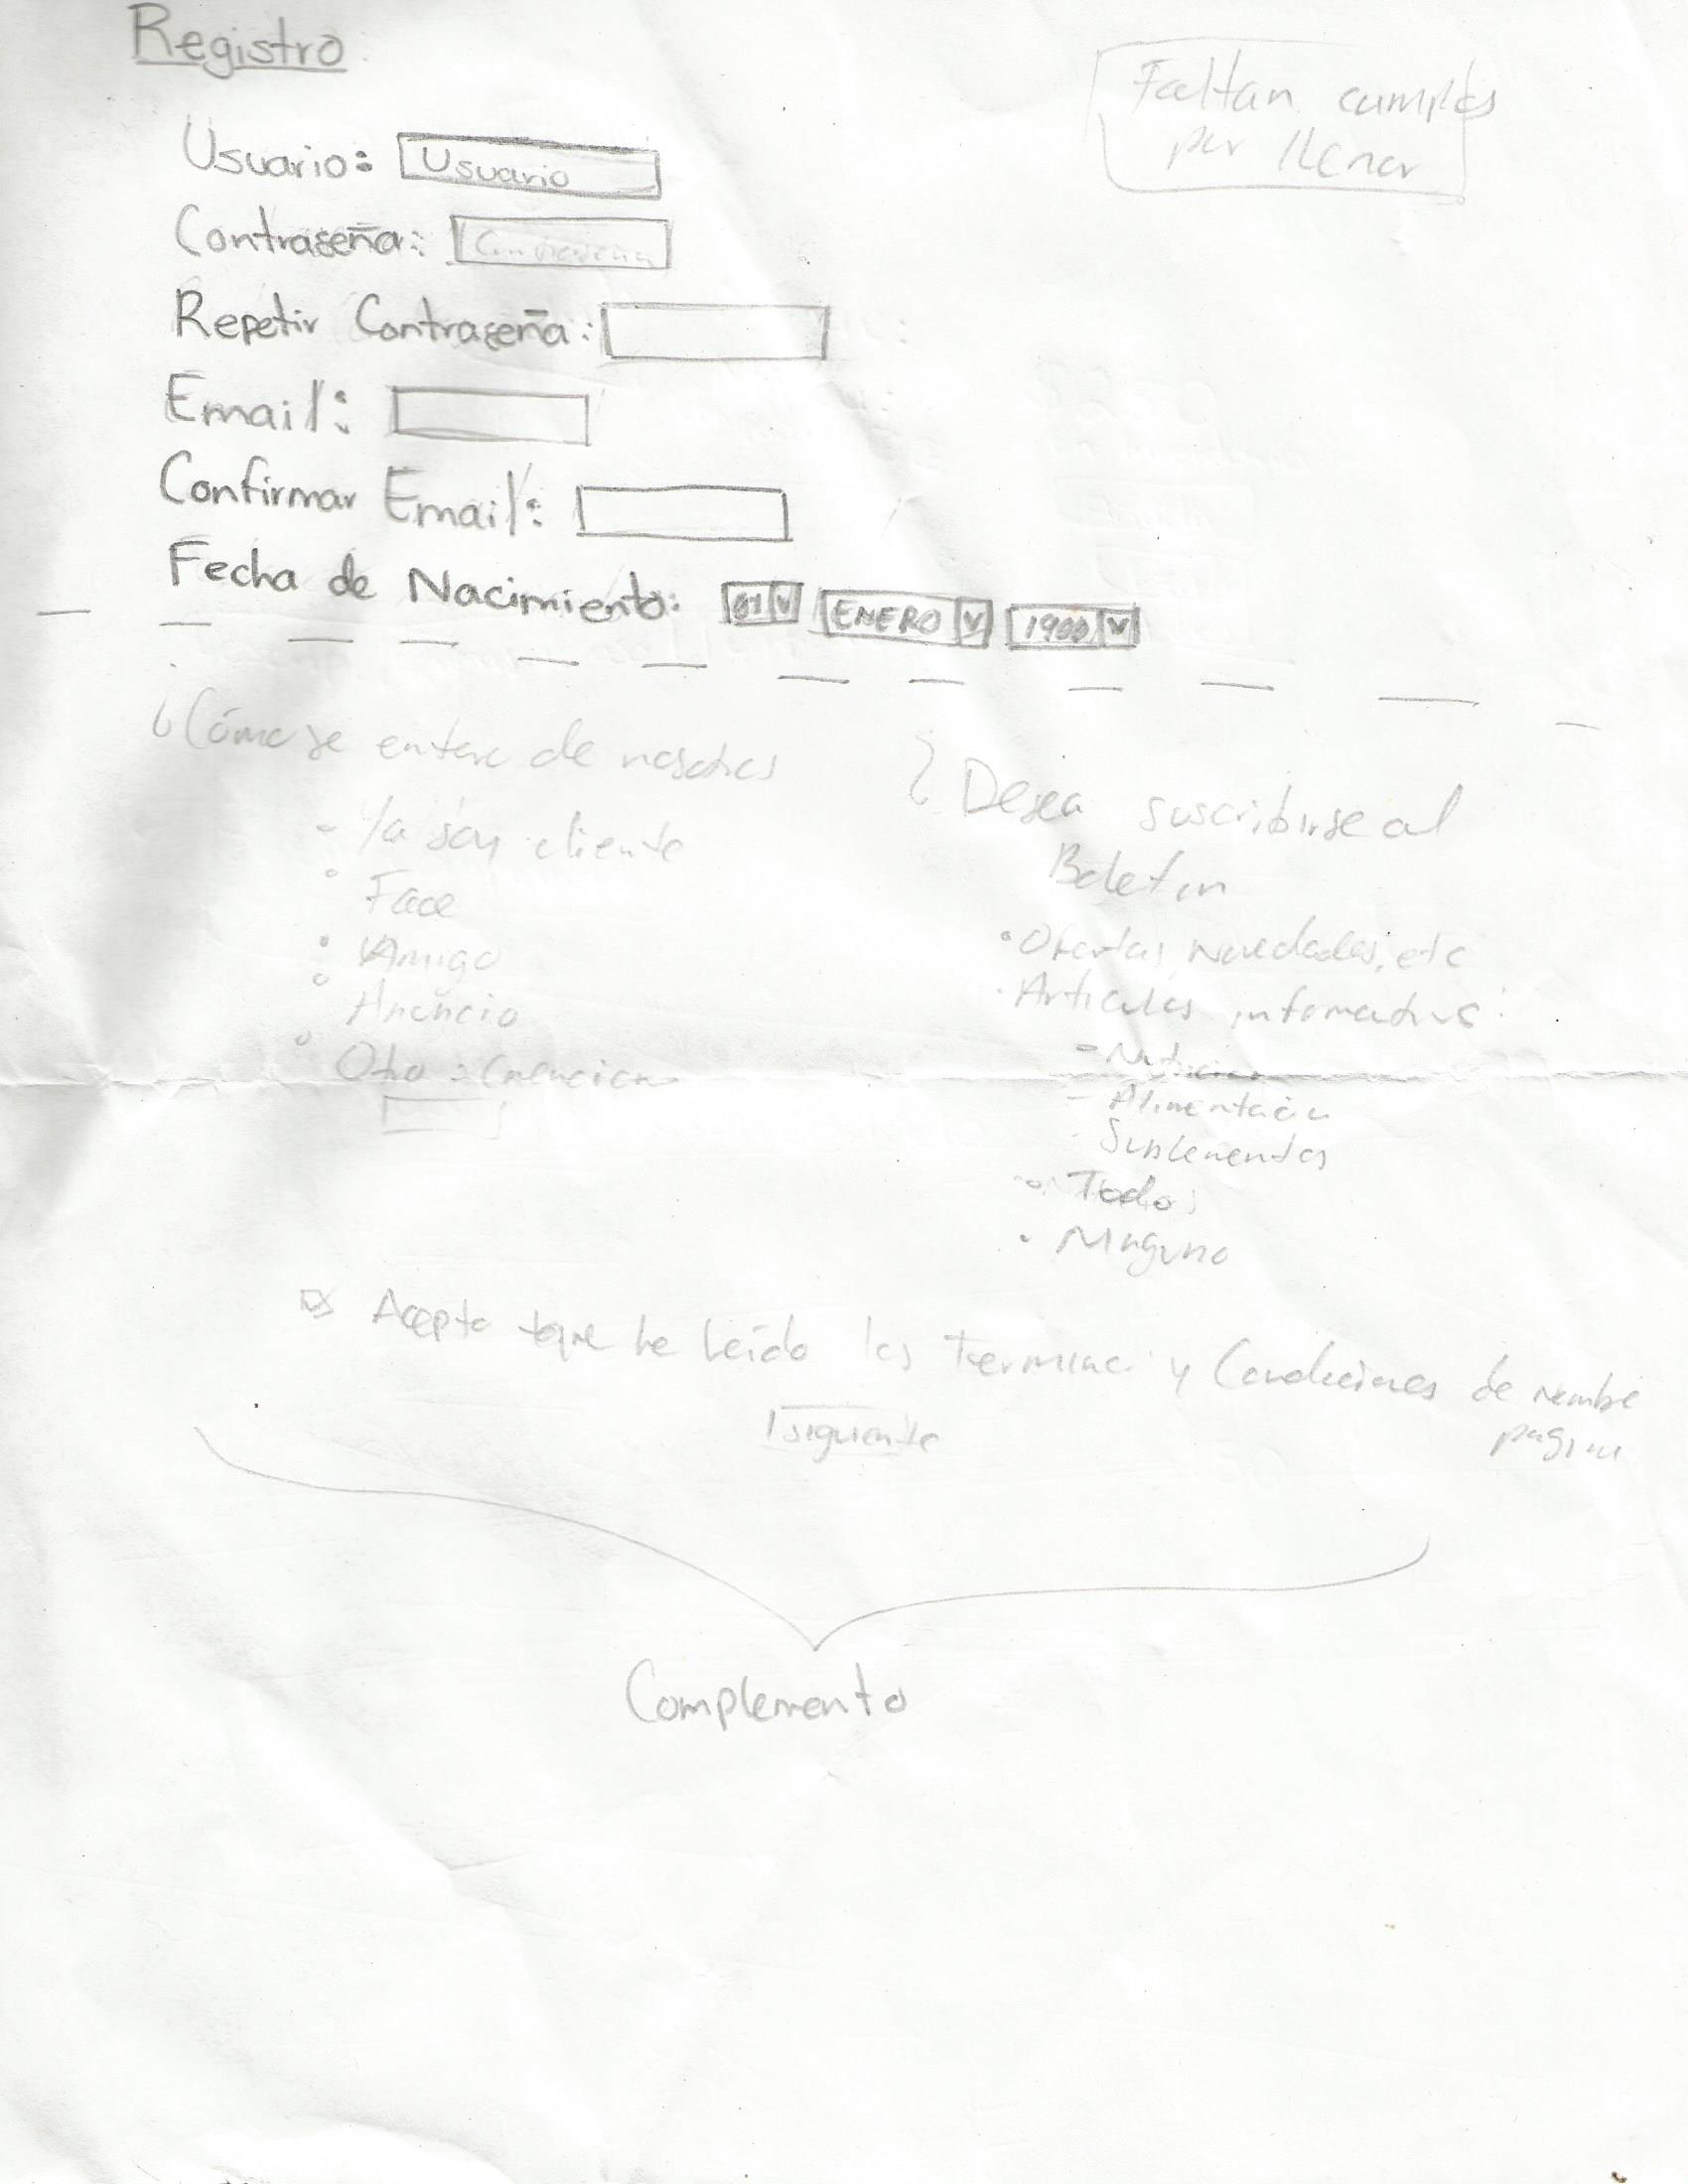 Registro
Faltan cumplos
por llenar
Usuario: Usuario
Contraseña: Contraseña
Repetir Contraseña:
Email:
Confirmar Email:
Fecha de Nacimiento: 01 ENERO 1900
¿Cómo se entero de nosotros
- Ya soy cliente
Face
Amigo
Anuncio
Otro:
¿ Desea suscribirse al
Boletin
• Ofertas, novedades, etc
• Articulos informativos:
- Alimentación
- Suplementos
Todos
• Ninguno
Acepto que he leído los terminos y Condiciones de nombre
pagina
siguiente
Complemento